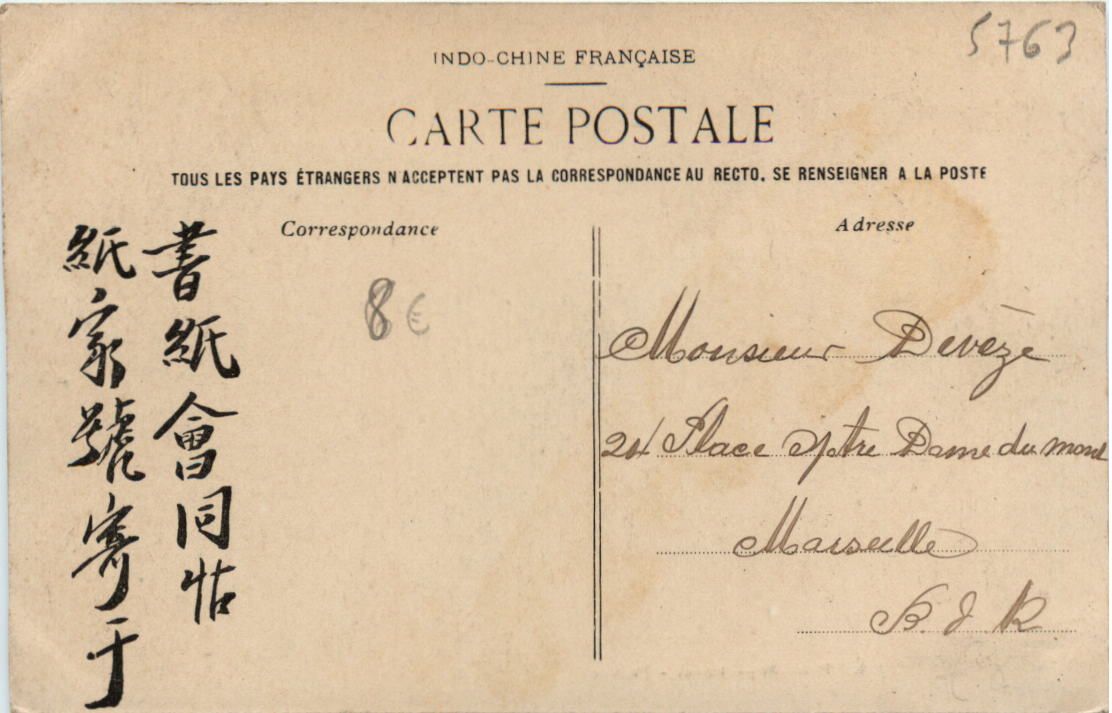 5763
INDO-CHINE FRANÇAISE
CARTE POSTALE
TOUS LES PAYS ÉTRANGERS N ACCEPTENT PAS LA CORRESPONDANCE AU RECTO. SE RENSEIGNER A LA POSTE
Correspondance
書紙會同怗
紙家號寄于
8€
Adresse
Monsieur Devèze
24 Place Notre Dame du mont
Marseille
B. d R